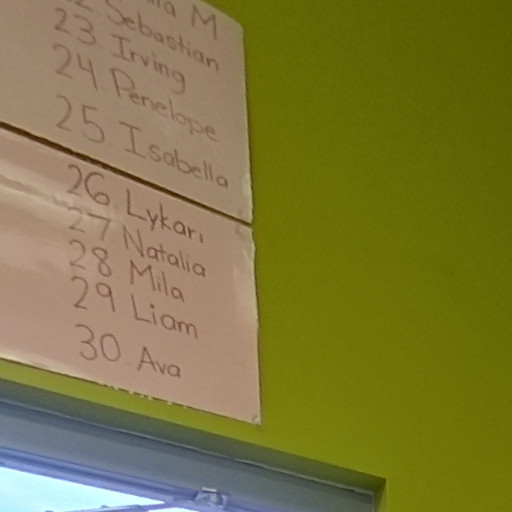 M
Sebastian
23 Irving
24 Penelope
25 Isabella
26 Lykari
27 Natalia
28 Mila
29 Liam
30 Ava